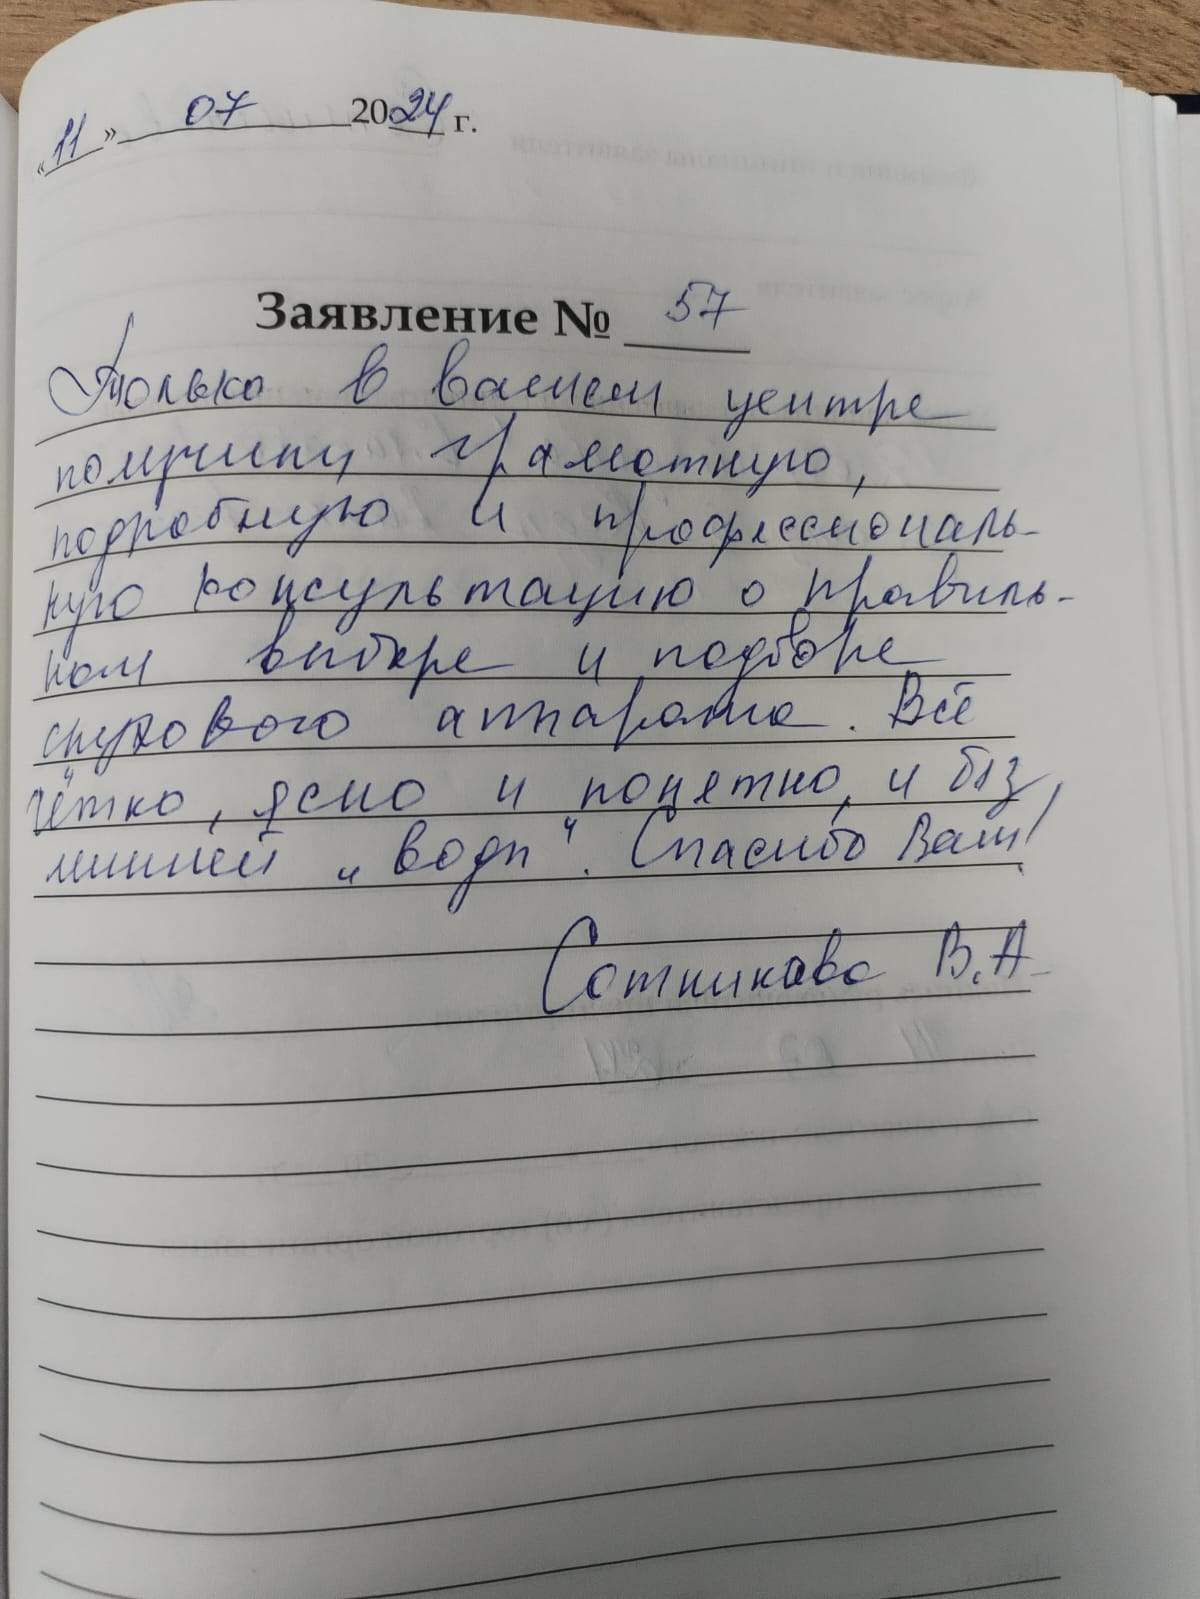 «11» 07 2024 г.
Заявление № 57
Только в вашем центре
получили грамотную,
подробную и профессиональ-
ную консультацию о правиль-
ном выборе и подборе
слухового аппарата. Всё
чётко, ясно и понятно, и без
лишней „воды“. Спасибо Вам!
Сотникова В.А.